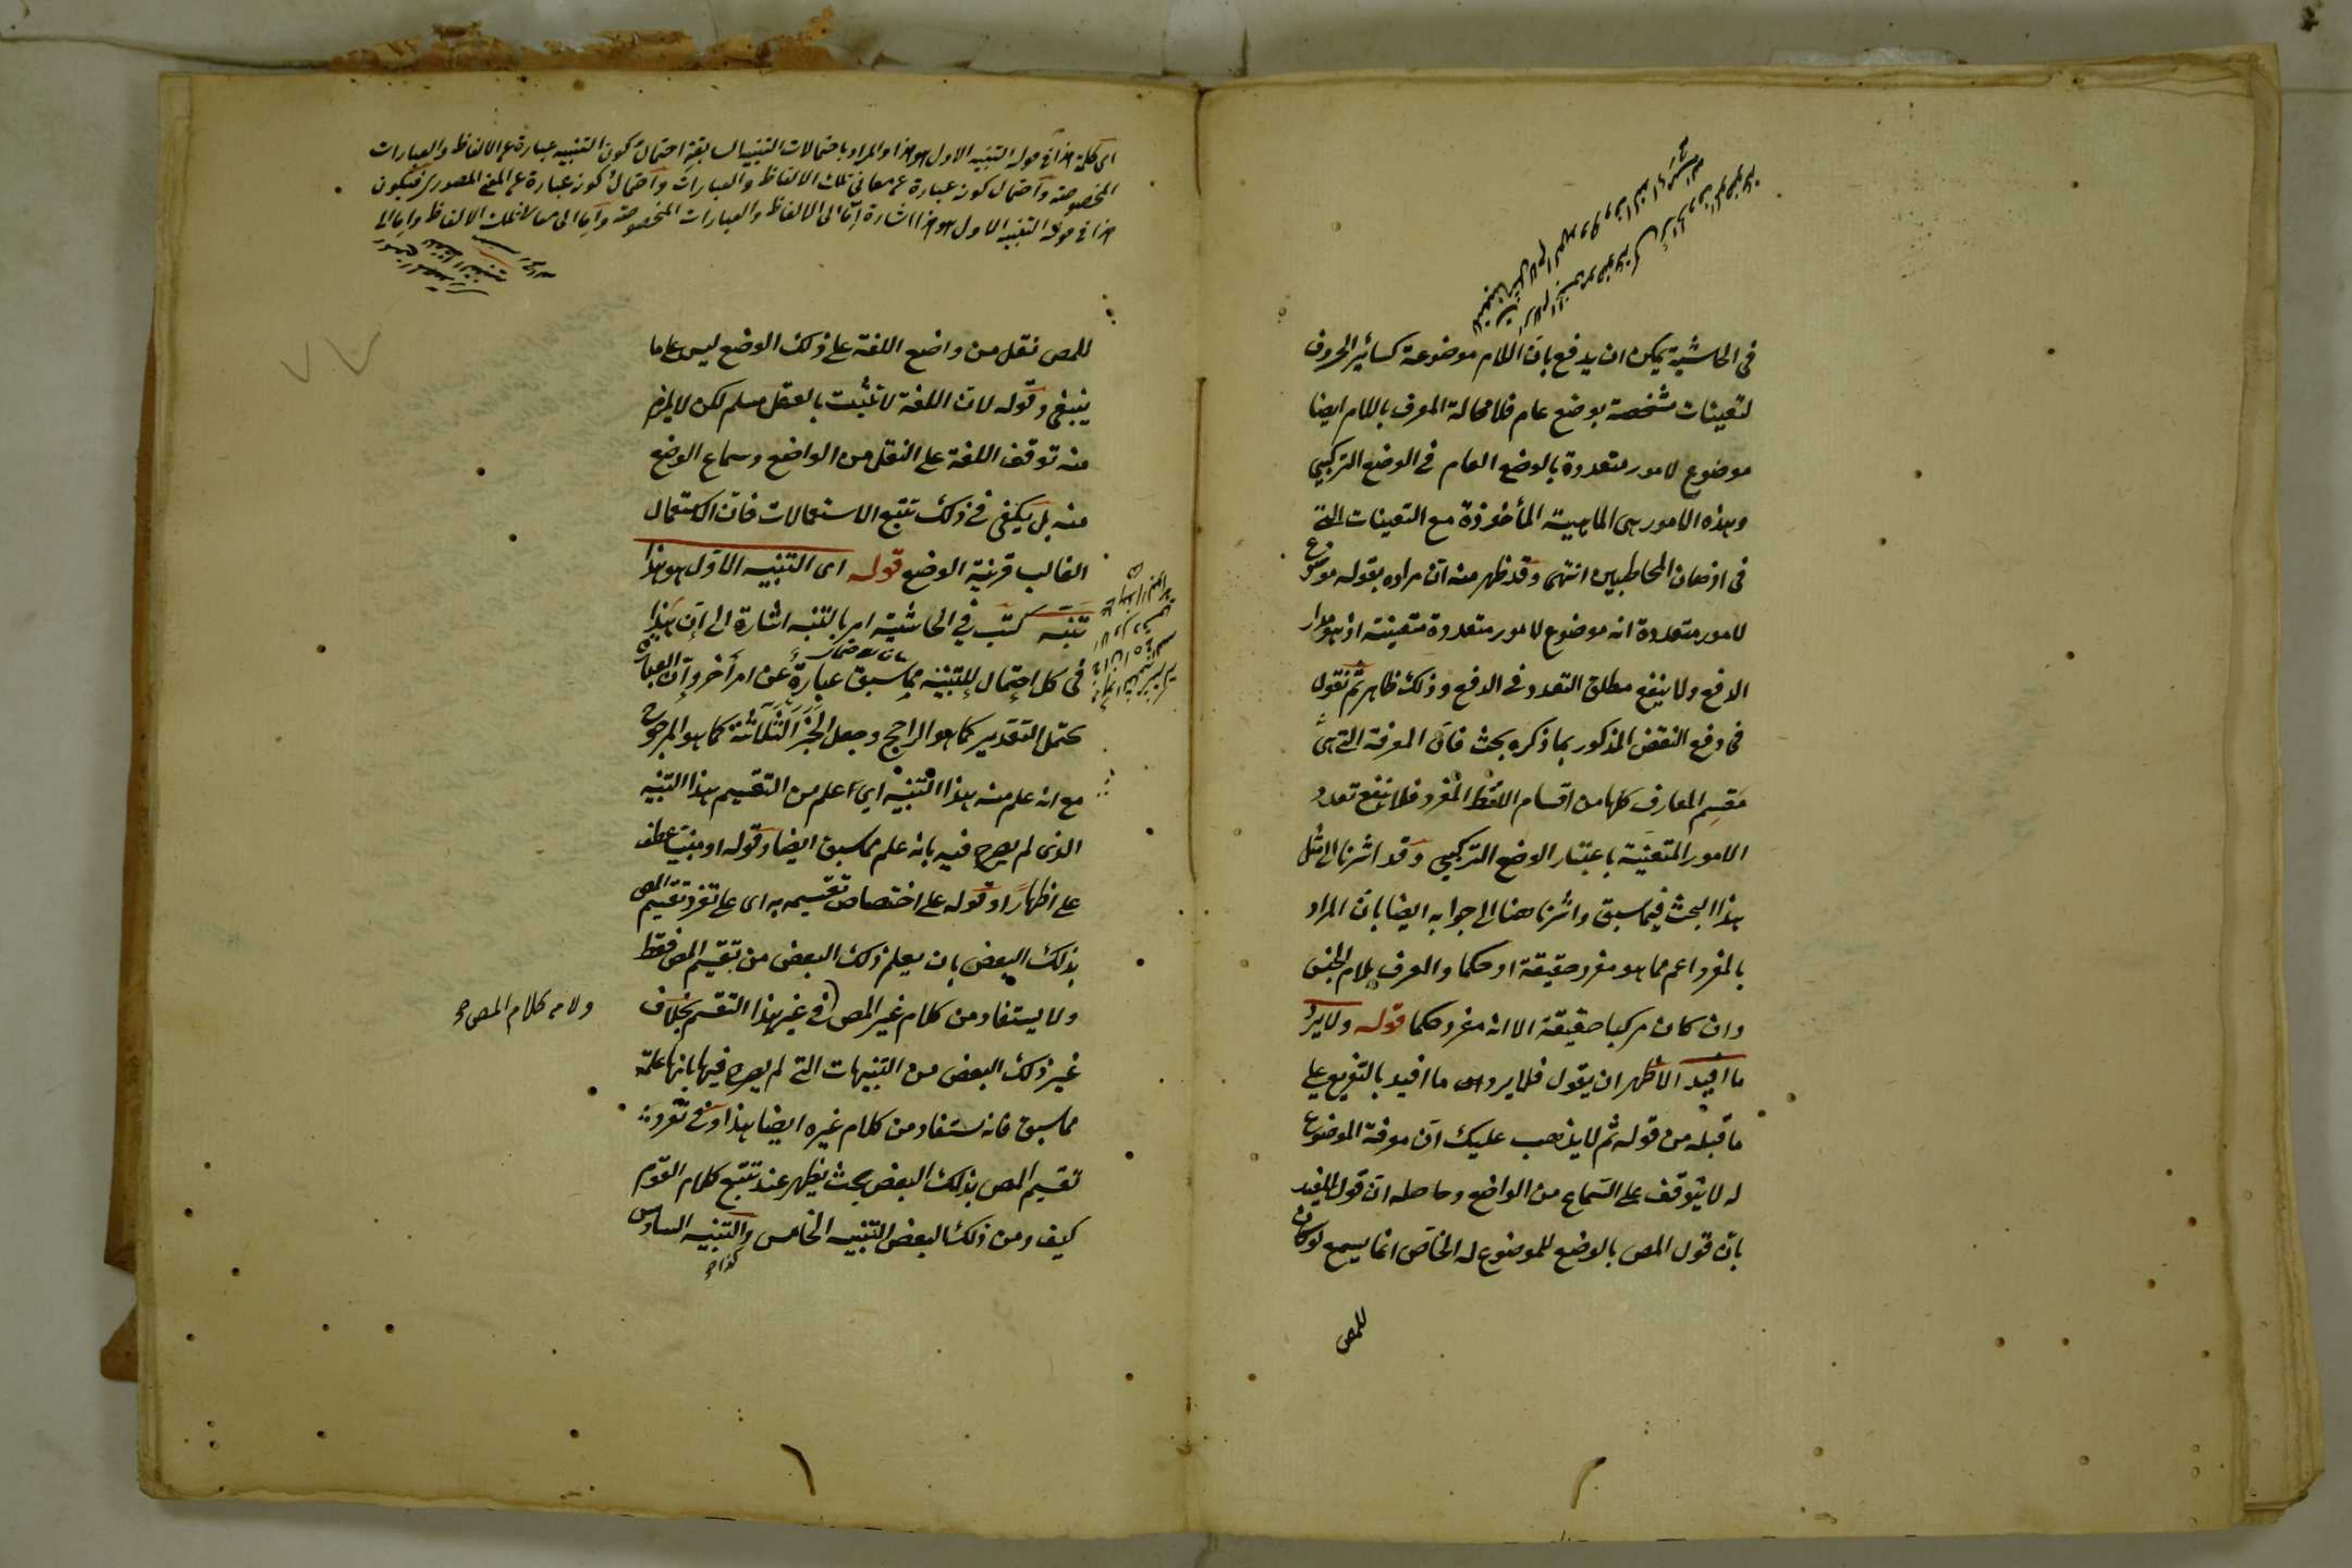 في الحاشية يمكن ان يدفع بان اللام موضوعة كسائر الحروف
لتعينات مشخصة بوضع عام فلا محالة المعرف باللام ايضا
موضوع لامور متعددة بالوضع العام في الوضع التركيبي
وهذه الامور هى الماهية المأخوذة مع التعينات التى
في اذهان المخاطبين انتهى وقد ظهر منه ان مراده بقوله موضوع
لامور متعددة انه موضوع لامور متعددة متعينة اذ هو مدار
الدفع ولا ينفع مطلق التعدد في الدفع وذلك ظاهر ثم نقول
في دفع النقض المذكور بما ذكره بحث فان المعرفة التى هى
مقسم المعارف كلها من اقسام اللفظ المفرد فلا ينفع تعدد
الامور المتعينة باعتبار الوضع التركيبي وقد اشرنا الى مثل
هذا البحث فيما سبق واشرنا هنا الى جوابه ايضا بان المراد
بالمفرد اعم مما هو مفرد حقيقة او حكما والمعرف بلام الجنس
وان كان مركبا حقيقة الا انه مفرد حكما قوله ولا يرد
ما افيد الاظهر ان يقول فلا يرد ما افيد بالتفريع على
ما قبله من قوله ثم لا يذهب عليك ان معرفة الموضوع
له لا يتوقف على السماع من الواضع وحاصله ان قول المفيد
بان قول المص بالوضع للموضوع له الخاص انما يسمع لو كان
للمص
اى كلمة هذا في قوله التنبيه الاول هو هذا والمراد باحتمالات التنبيه السابقة احتمال كون التنبيه عبارة عن الالفاظ والعبارات
المخصوصة واحتمال كونه عبارة عن معانى تلك الالفاظ والعبارات واحتمال كونه عبارة عن المعنى المصدرى فيكون
هذا في قوله التنبيه الاول هو هذا اشارة اما الى الالفاظ والعبارات المخصوصة واما الى معانى تلك الالفاظ واما الى
للمص نقل من واضع اللغة على ذلك الوضع ليس على ما
ينبغى وقوله لان اللغة لا تثبت بالعقل مسلم لكن لا يلزم
منه توقف اللغة على النقل من الواضع وسماع الوضع
منه بل يكفى في ذلك تتبع الاستعمالات فان الاستعمال
الغالب قرينة الوضع قوله اى التنبيه الاول هو هذا
تنبه كتب في الحاشية امر بالتنبه اشارة الى ان هذا
في كل احتمال للتنبيه مما سبق عبارة عن امر آخر وان العبارة
تحتمل التقدير كما هو الراجح وجعل الجزء الثلاثة كما هو المرجوح
مع انه علم منه هذا التنبيه اي اعلم من التقسيم هذا التنبيه
الذى لم يصرح فيه بانه علم مما سبق ايضا وقوله او مبنية عطف
على اظهارا وقوله على اختصاص تقسيمه به اى على تفرد تقسيم المص
بذلك البعض بان يعلم ذلك البعض من تقسيم المص فقط
ولا يستفاد من كلام غير المص في غير هذا التقسيم بخلاف
ولا من كلام المص
غير ذلك البعض من التنبيهات التى لم يصرح فيها بانها علمت
مما سبق فانه يستفاد من كلام غيره ايضا هذا وفي تفرد
تقسيم المص بذلك البعض بحث يظهر عند تتبع كلام القوم
كيف ومن ذلك البعض التنبيه الخامس والتنبيه السادس